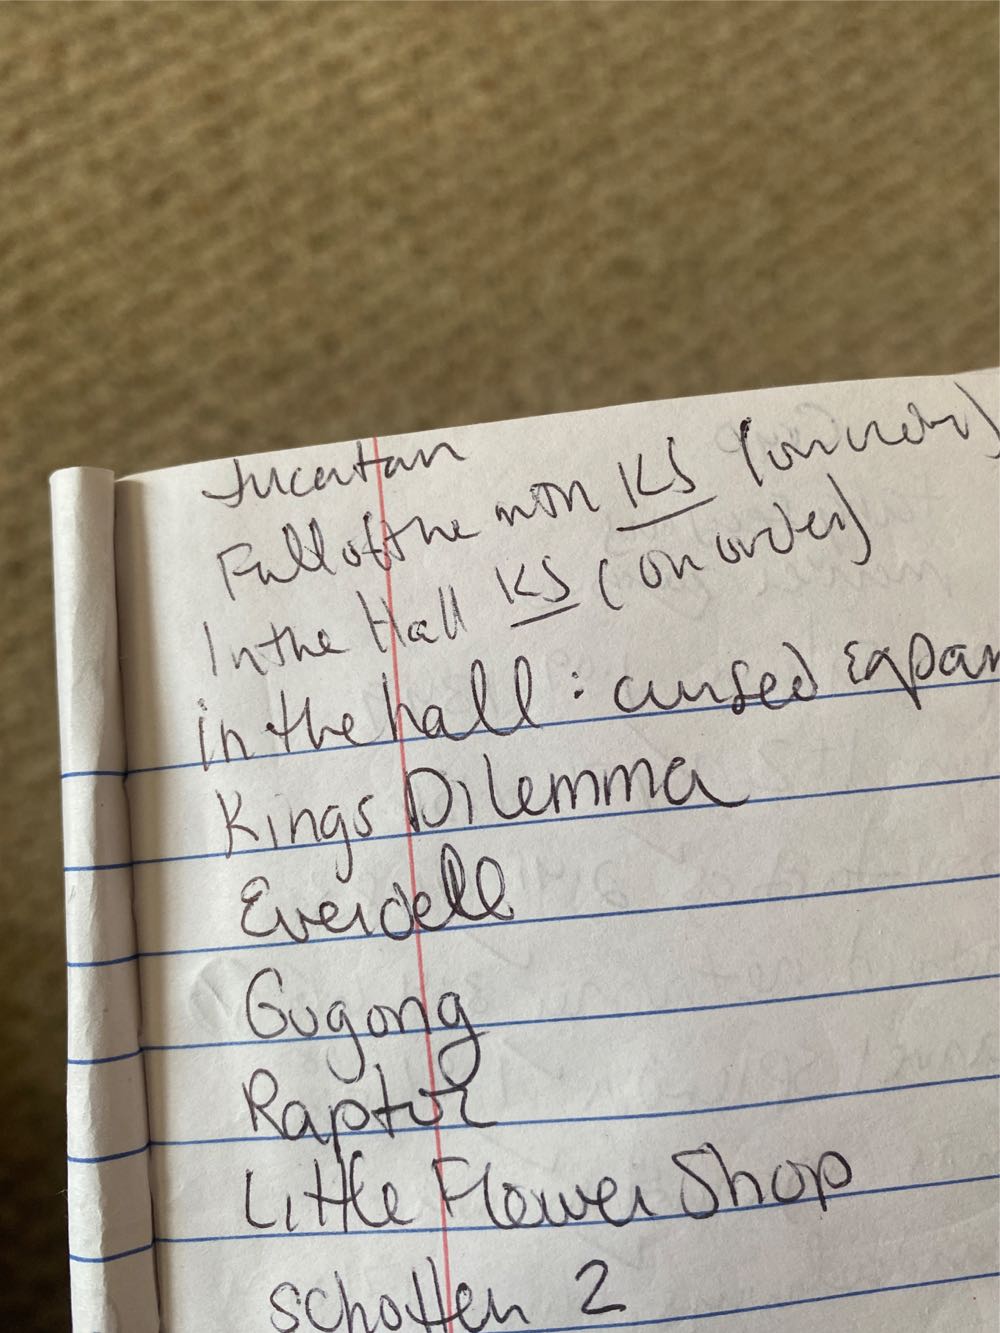 Yucatan
Fall of the mtn KS (on order)
In the Hall KS (on order)
in the hall : cursed Expan
Kings Dilemma
Everdell
Gugong
Raptor
Little Flower Shop
Schotten 2